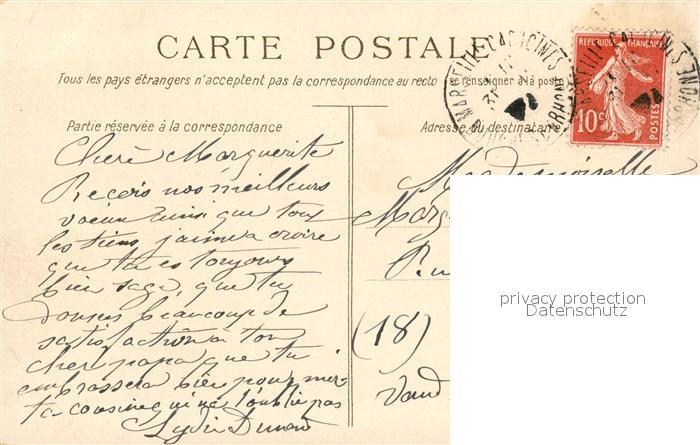 CARTE POSTALE
Tous les pays étrangers n'acceptent pas la correspondance au recto
se renseigner à la poste
Partie réservée à la correspondance
Adresse du destinataire
Chère Marguerite
Reçois nos meilleurs
voeux ainsi que tous
les tiens, j'aime a croire
que tu es toujours
bien sage, que tu
donnes beaucoup de
satisfaction a ton
cher papa que tu
embrassera bien pour moi
ta cousine qui ne t'oublie pas
Lydie Durand
Mademoiselle
Marg
(18)
REPUBLIQUE FRANÇAISE
10c
POSTES
MARSEILLE-CAPUCINES
privacy protection
Datenschutz